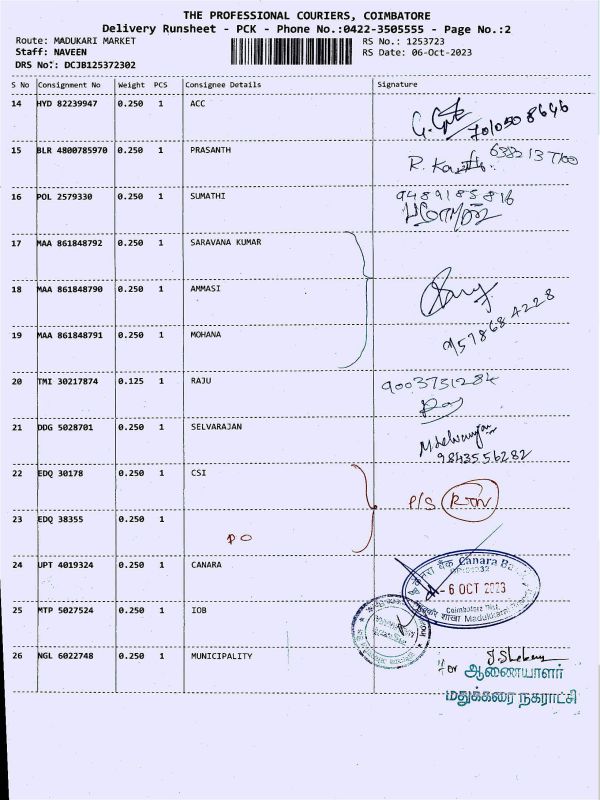 THE PROFESSIONAL COURIERS, COIMBATORE
Delivery Runsheet - PCK - Phone No.:0422-3505555 - Page No.:2
Route: MADUKARI MARKET RS No.: 1253723
Staff: NAVEEN RS Date: 06-Oct-2023
DRS No: DCJB125372302
S No Consignment No Weight PCS Consignee Details Signature
14 HYD 82239947 0.250 1 ACC
7010508646
15 BLR 4800785970 0.250 1 PRASANTH
R.
16 POL 2579330 0.250 1 SUMATHI 9489185816
17 MAA 861848792 0.250 1 SARAVANA KUMAR
18 MAA 861848790 0.250 1 AMMASI
19 MAA 861848791 0.250 1 MOHANA
9578684228
20 TMI 30217874 0.125 1 RAJU 9003751284
21 DDG 5028701 0.250 1 SELVARAJAN
9843556282
22 EDQ 30178 0.250 1 CSI
P/S RTN
23 EDQ 38355 0.250 1
PO
24 UPT 4019324 0.250 1 CANARA
Canara Bank
- 6 OCT 2023
Coimbatore Dist.
25 MTP 5027524 0.250 1 IOB
26 NGL 6022748 0.250 1 MUNICIPALITY
For ஆணையாளர்
மதுக்கரை நகராட்சி